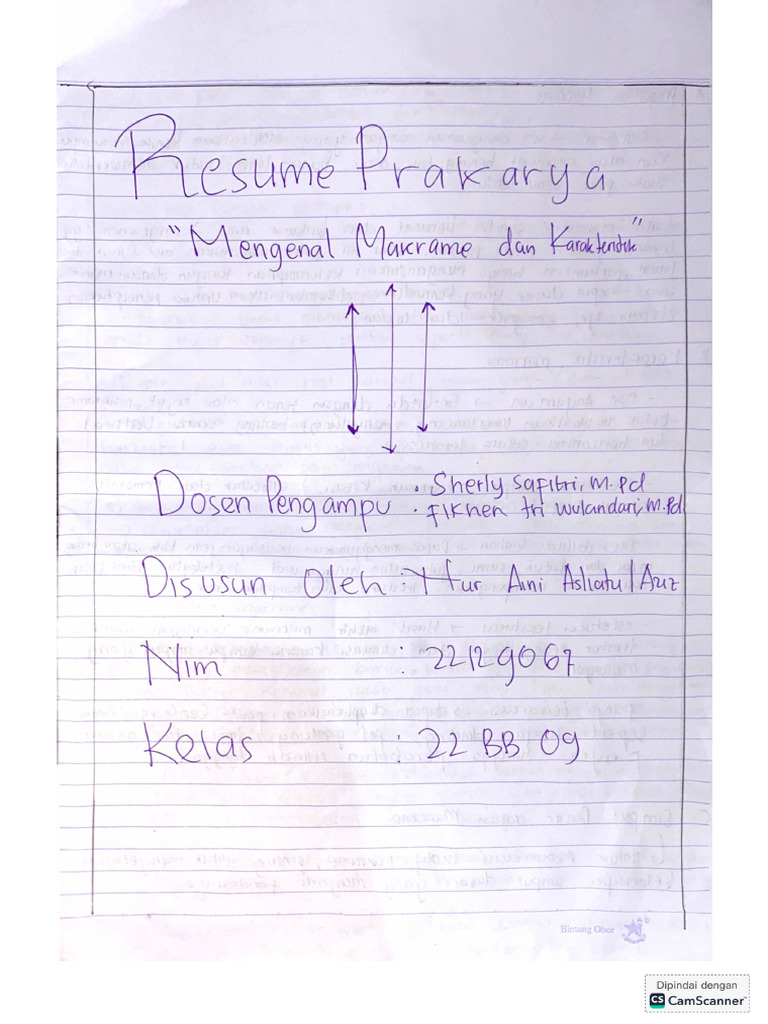 Resume Prakarya
"Mengenal Makrame dan Karakteristik"
Dosen Pengampu : Sherly Safitri, M.Pd
. Fikhen tri wulandari, M.Pd
Disusun Oleh : Nur Aini Asliatul Aziz
Nim : 22129067
Kelas : 22 BB 09
Bintang Obor
Dipindai dengan
CS CamScanner